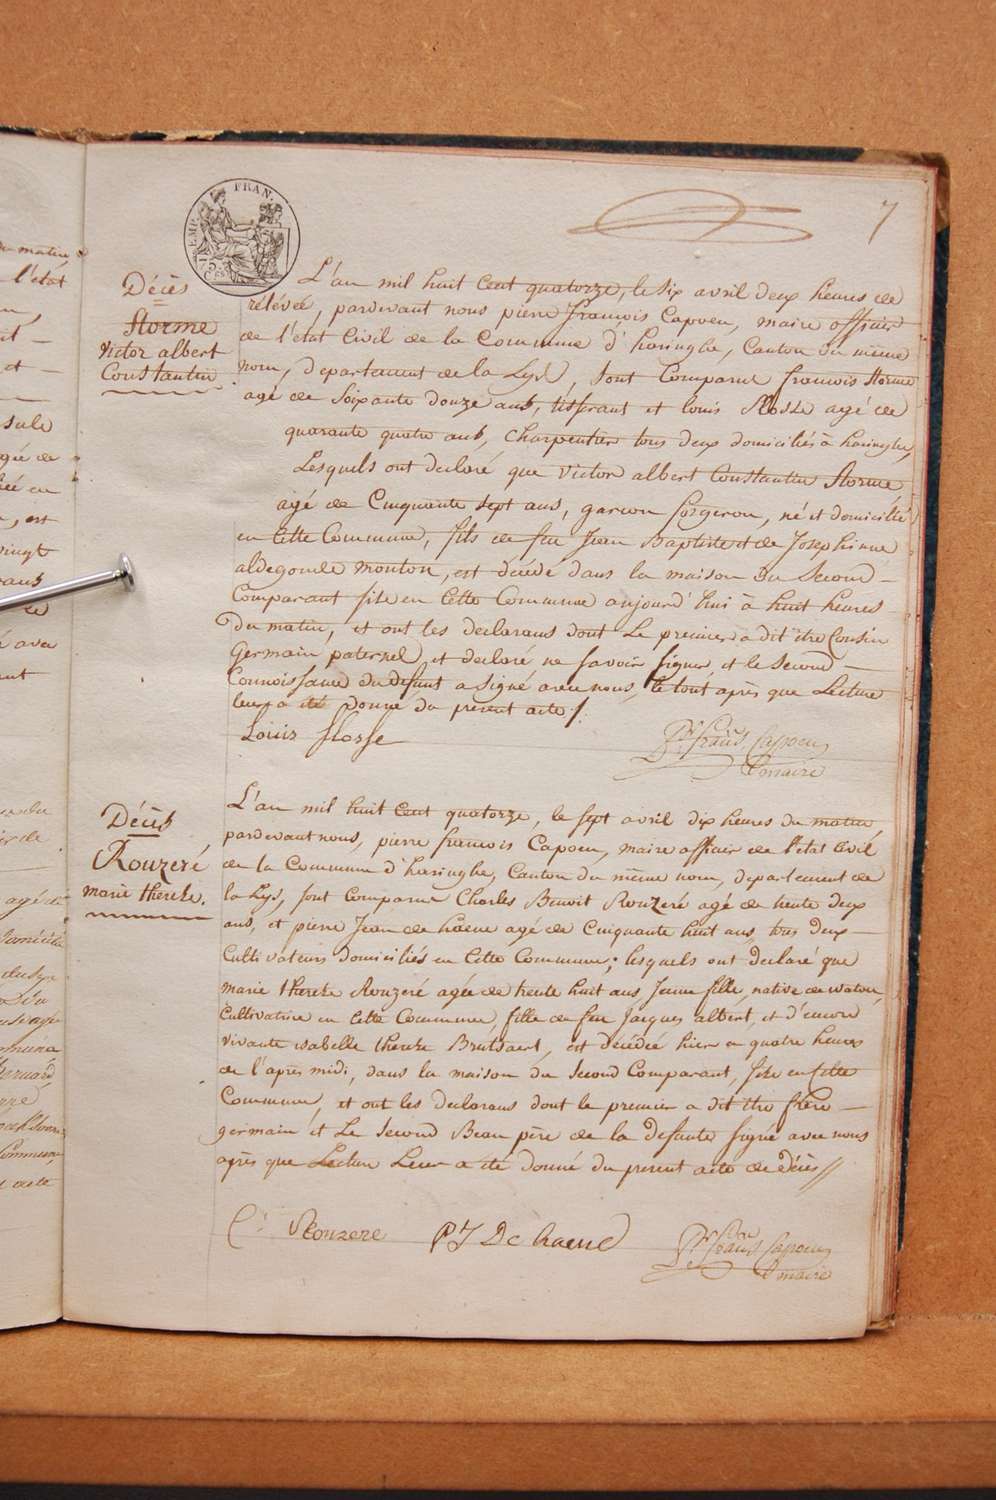 7
EMP. FRAN.
Décès
Storme
victor albert
Constantin
L'an mil huit Cent quatorze, le six avril deux heures de
rélévée, pardevant nous pierre François Capoen, maire officier
de l'état Civil de la Commune d'haringhe, Canton du même
nom, departement de la Lys, sont Comparus francois Storme
agé de Soixante douze ans, tisserant et louis Flosse agé de
quarante quatre ans, Charpentier tous deux domiciliés à haringhe,
Lesquels ont declaré que victor albert Constantin Storme
agé de Cinquante sept ans, garcon forgeron, né et domicilié
en Cette Commune, fils de feu Jean Baptiste et de Josephinne
aldegonde mouton, est décédé dans la maison du Second
Comparant site en Cette Commune aujourd'hui à huit heures
du matin, et ont les declarans dont Le premier a dit être Cousin
Germain paternel et declaré ne savoir signer et le Second
Connoissance du defunt a signé avec nous, le tout après que Lecture
leur a été donné du present acte /.
Louis flosse
Pre. frans. Capoen
maire
Décès
Rouzeré
marie therese.
L'an mil huit Cent quatorze, le sept avril dix heures du matin
pardevant nous, pierre francois Capoen, maire officier de l'état Civil
de la Commune d'haringhe, Canton du même nom, departement de
la Lys, sont Comparus Charles Benoit Rouzeré agé de trente deux
ans, et pierre Jean de haene agé de Cinquante huit ans tous deux
Cultivateurs domiciliés en Cette Commune; lesquels ont declaré que
marie therese Rouzeré agée de trente huit ans Jeune fille, native de watou,
Cultivatrice en Cette Commune, fille de feu Jacques albert, et d'encore
vivante isabelle therese Brutsaert, est décédée hier a quatre heures
de l'après midi, dans la maison du Second Comparant, site en Cette
Commune, et ont les declarans dont le premier a dit être frère
germain et Le Second Beau père de la defunte signé avec nous
après que Lecture Leur a été donné du present acte de décès //
C: Rouzere
P J De haene
Pre. frans. Capoen
maire